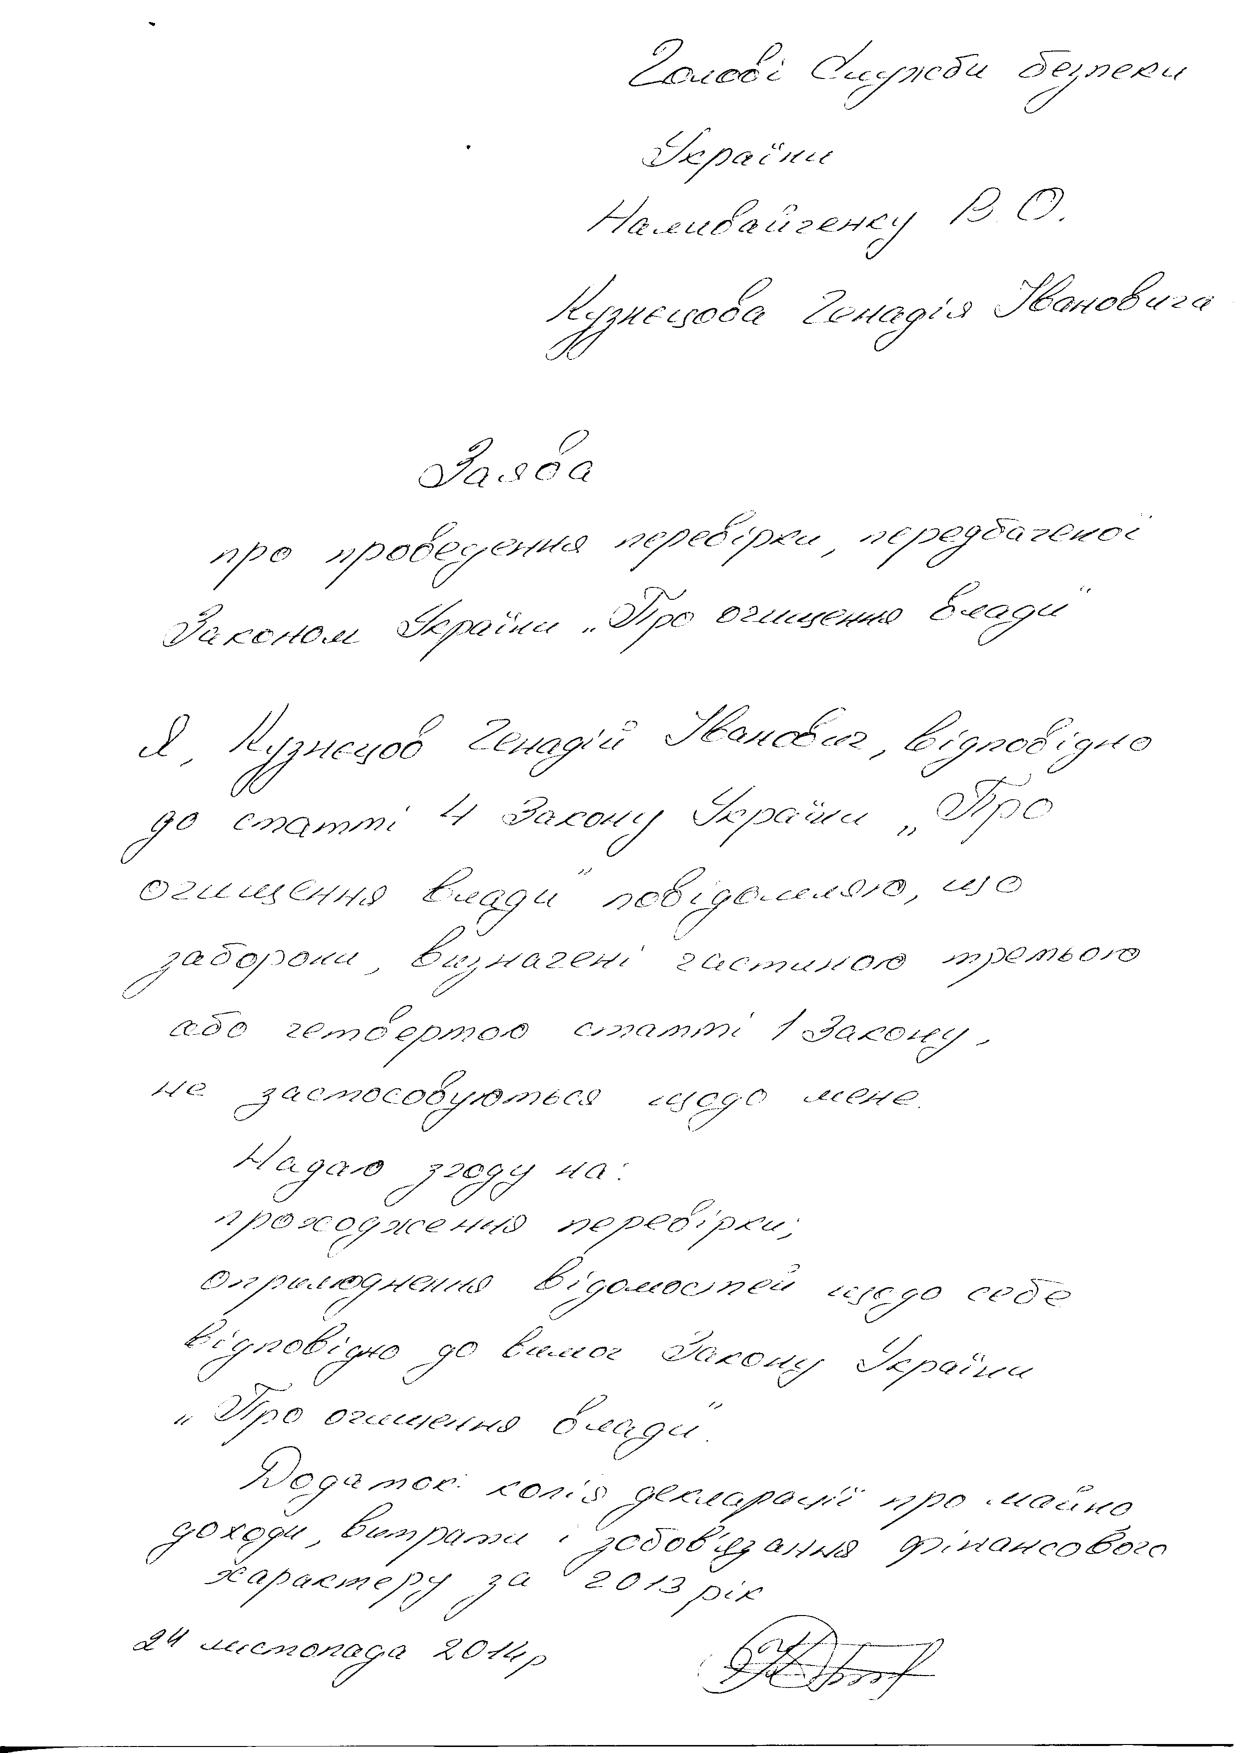 Голові Служби безпеки
України
Наливайченку В.О.
Кузнєцова Генадія Івановича
Заява
про проведення перевірки, передбаченої
Законом України „Про очищення влади"
Я, Кузнєцов Генадій Іванович, відповідно
до статті 4 Закону України „Про
очищення влади" повідомляю, що
заборони, визначені частиною третьою
або четвертою статті 1 Закону,
не застосовуються щодо мене.
Надаю згоду на:
проходження перевірки;
оприлюднення відомостей щодо себе
відповідно до вимог Закону України
„Про очищення влади".
Додаток: копія декларації про майно,
доходи, витрати і зобов'язання фінансового
характеру за 2013 рік
24 листопада 2014р